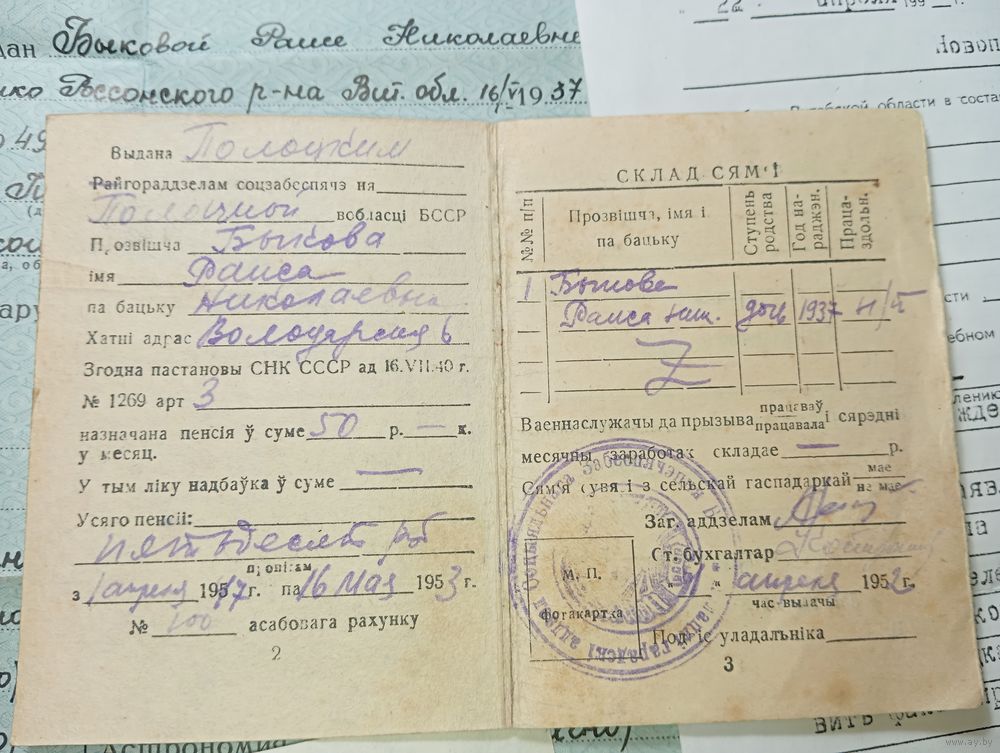 22 апреля 199 г.
дан Быковой Раисе Николаевне
Россонского р-на Вит. обл. 16/VI 1937
области в соста
Выдана Полоцким
Райгораддзелам соцзабеспячэ ня
Полацкой вобласці БССР
П озвішча Быкова
імя Раиса
па бацьку Николаевна
Хатні адрас Володарская 6
Згодна пастановы СНК СССР ад 16.VII.40 г.
№ 1269 арт 3
назначана пенсія ў суме 50 р. — к.
у месяц.
У тым ліку надбаўка ў суме —
Усяго пенсіі:
пятьдесят рб
пропісам
з 1 апреля 195 г. па 16 мая 1953 г.
№ 100 асабовага рахунку
2
СКЛАД СЯМ'І
№№ п/п
Прозвішча, імя і па бацьку
Ступень родства
Год нараджэн.
Праца-здольн.
1 Быкова
Раиса Ник. дочь 1937 н/т
Z
Ваеннаслужачы да прызыва працаваў працавала і сярэдні
месячны заработак складае — р.
Сям'я сувя і з сельскай гаспадаркай мае не мае
Заг. аддзелам
Ст. бухгалтар
М. П.
фотакартка
" " апреля 1952 г.
час выдачы
Подпіс уладальніка
3
Астрономия
www.ay.by